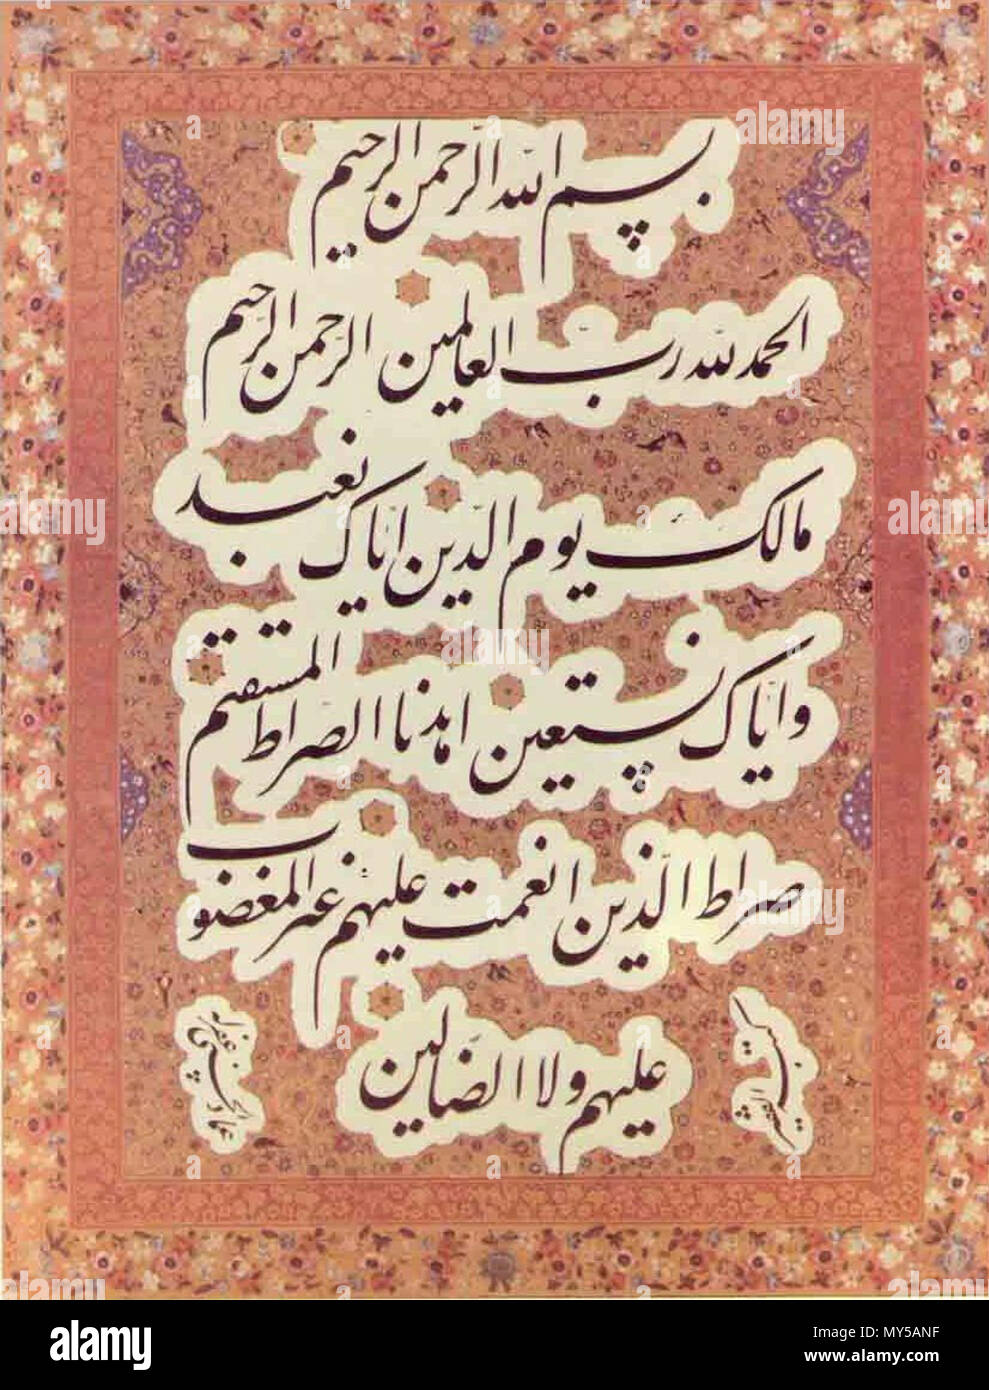 بسم الله الرحمن الرحيم
الحمد لله ربّ العالمين الرّحمن الرّحيم
مالك يوم الدّين ايّاك نعبد
وايّاك نستعين اهدنا الصّراط المستقيم
صراط الّذين انعمت عليهم غير المغضوب
عليهم ولا الضّالين
عماد الحسني غفر له
alamy
Image ID: MY5ANF
www.alamy.com